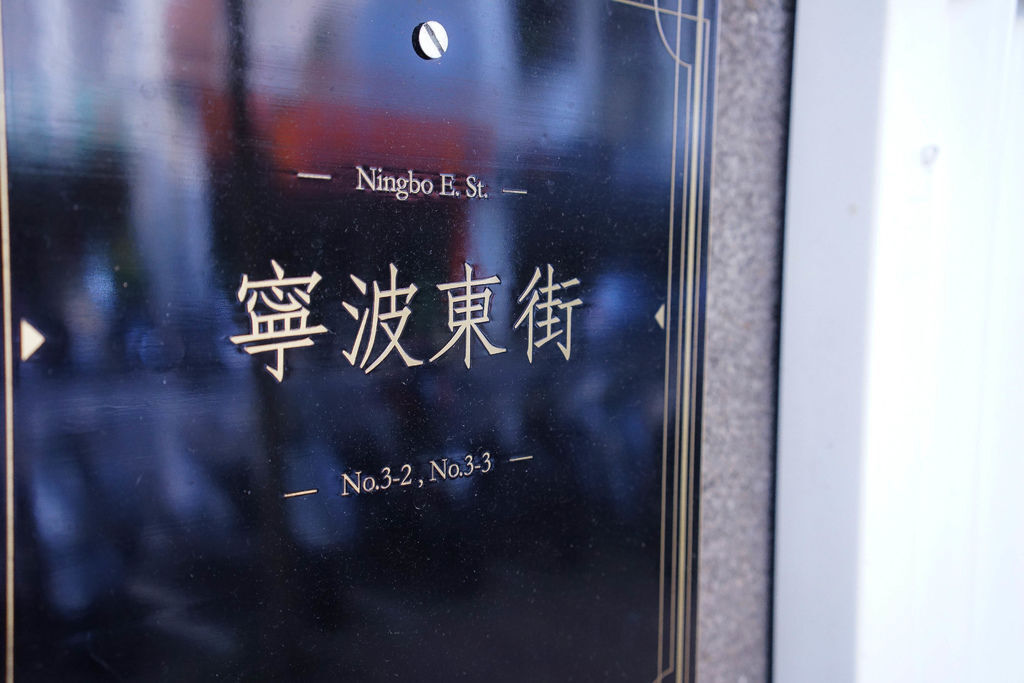 Ningbo E. St.
寧波東街
No.3-2 , No.3-3